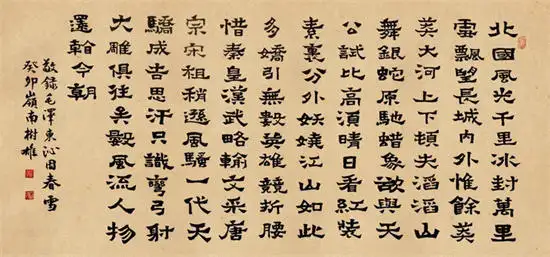 北國風光千里冰封萬里
雪飄望長城內外惟餘莽
莽大河上下頓失滔滔山
舞銀蛇原馳蜡象欲與天
公試比高須晴日看紅裝
素裹分外妖嬈江山如此
多嬌引無數英雄競折腰
惜秦皇漢武略輸文采唐
宗宋祖稍遜風騷一代天
驕成吉思汗只識彎弓射
大雕俱往矣數風流人物
還看今朝
敬錄毛澤東沁园春雪
癸卯嶺南樹雄